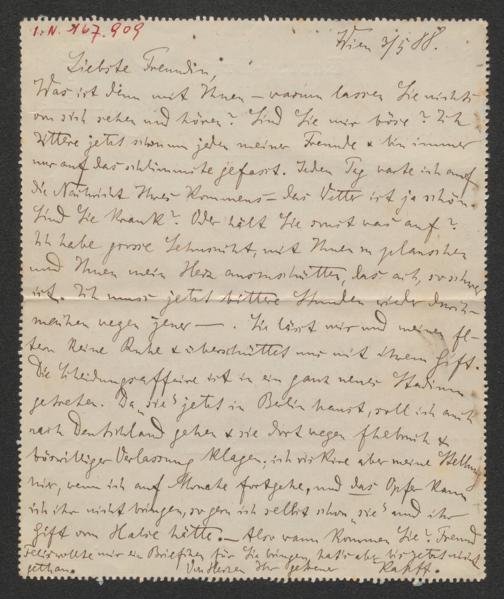 I.N. 167.909
Wien 2/5 88.
Liebste Freundin,
Was ist denn mit Ihnen – warum lassen Sie nichts
von sich sehen und hören? Sind Sie mir böse? Ich
zittere jetzt schon um jeden meiner Freunde & bin immer
nur auf das schlimmste gefasst. Jeden Tag warte ich auf
die Nachricht Ihres Kommens – das Wetter ist ja schön.
Sind Sie krank? Oder hält Sie sonst was auf?
Ich habe grosse Sehnsucht, mit Ihnen zu plauschen
und Ihnen mein Herz auszuschütten, das ach, so schwer
ist. Ich muss jetzt bittere Stunden wieder durch-
machen wegen jener —. Sie lässt mir und meinen El-
tern keine Ruhe & überschüttet uns mit ihrem Gift.
Die Scheidungsaffaire ist in ein ganz neues Stadium
getreten. Da „sie“ jetzt in Berlin haust, soll ich auch
nach Deutschland gehen & sie dort wegen Ehebruch &
böswilliger Verlassung klagen; ich riskire aber meine Stellung
hier, wenn ich auf Monate fortgehe, und das Opfer kann
ich ihr nicht bringen, so gern ich selbst schon „sie“ und ihr
Gift vom Halse hätte. – Also wann kommen Sie? Freund
wollte mir ein Briefchen für Sie bringen, hat's aber bis jetzt nicht
gethan. Von Herzen Ihr getreuer